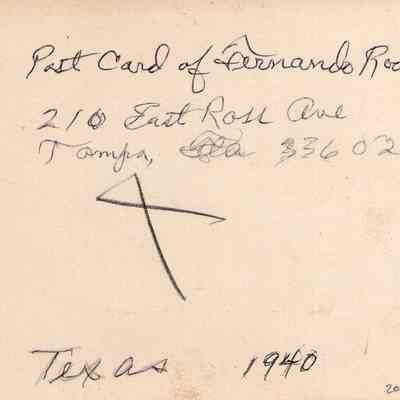 Post Card of Fernando Roo
210 East Ross Ave
Tampa, Fla 33602
Texas 1940
20